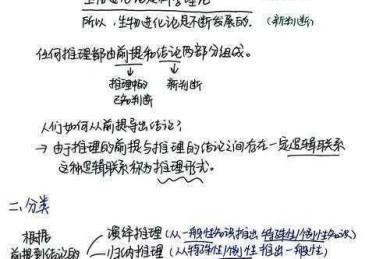 所以,生物进化论是不断发展的. (新判断)
任何推理都由前提和结论两部分组成。
推理中的已知判断 新判断
人们如何从前提导出结论?
→ 由于推理的前提与推理的结论之间存在一定逻辑联系
这种逻辑联系称为推理形式。
二、分类
根据
前提到结论的
演绎推理(从一般性知识推出特殊性/个别性知识)
归纳推理(从特殊性/个别性推出一般性)